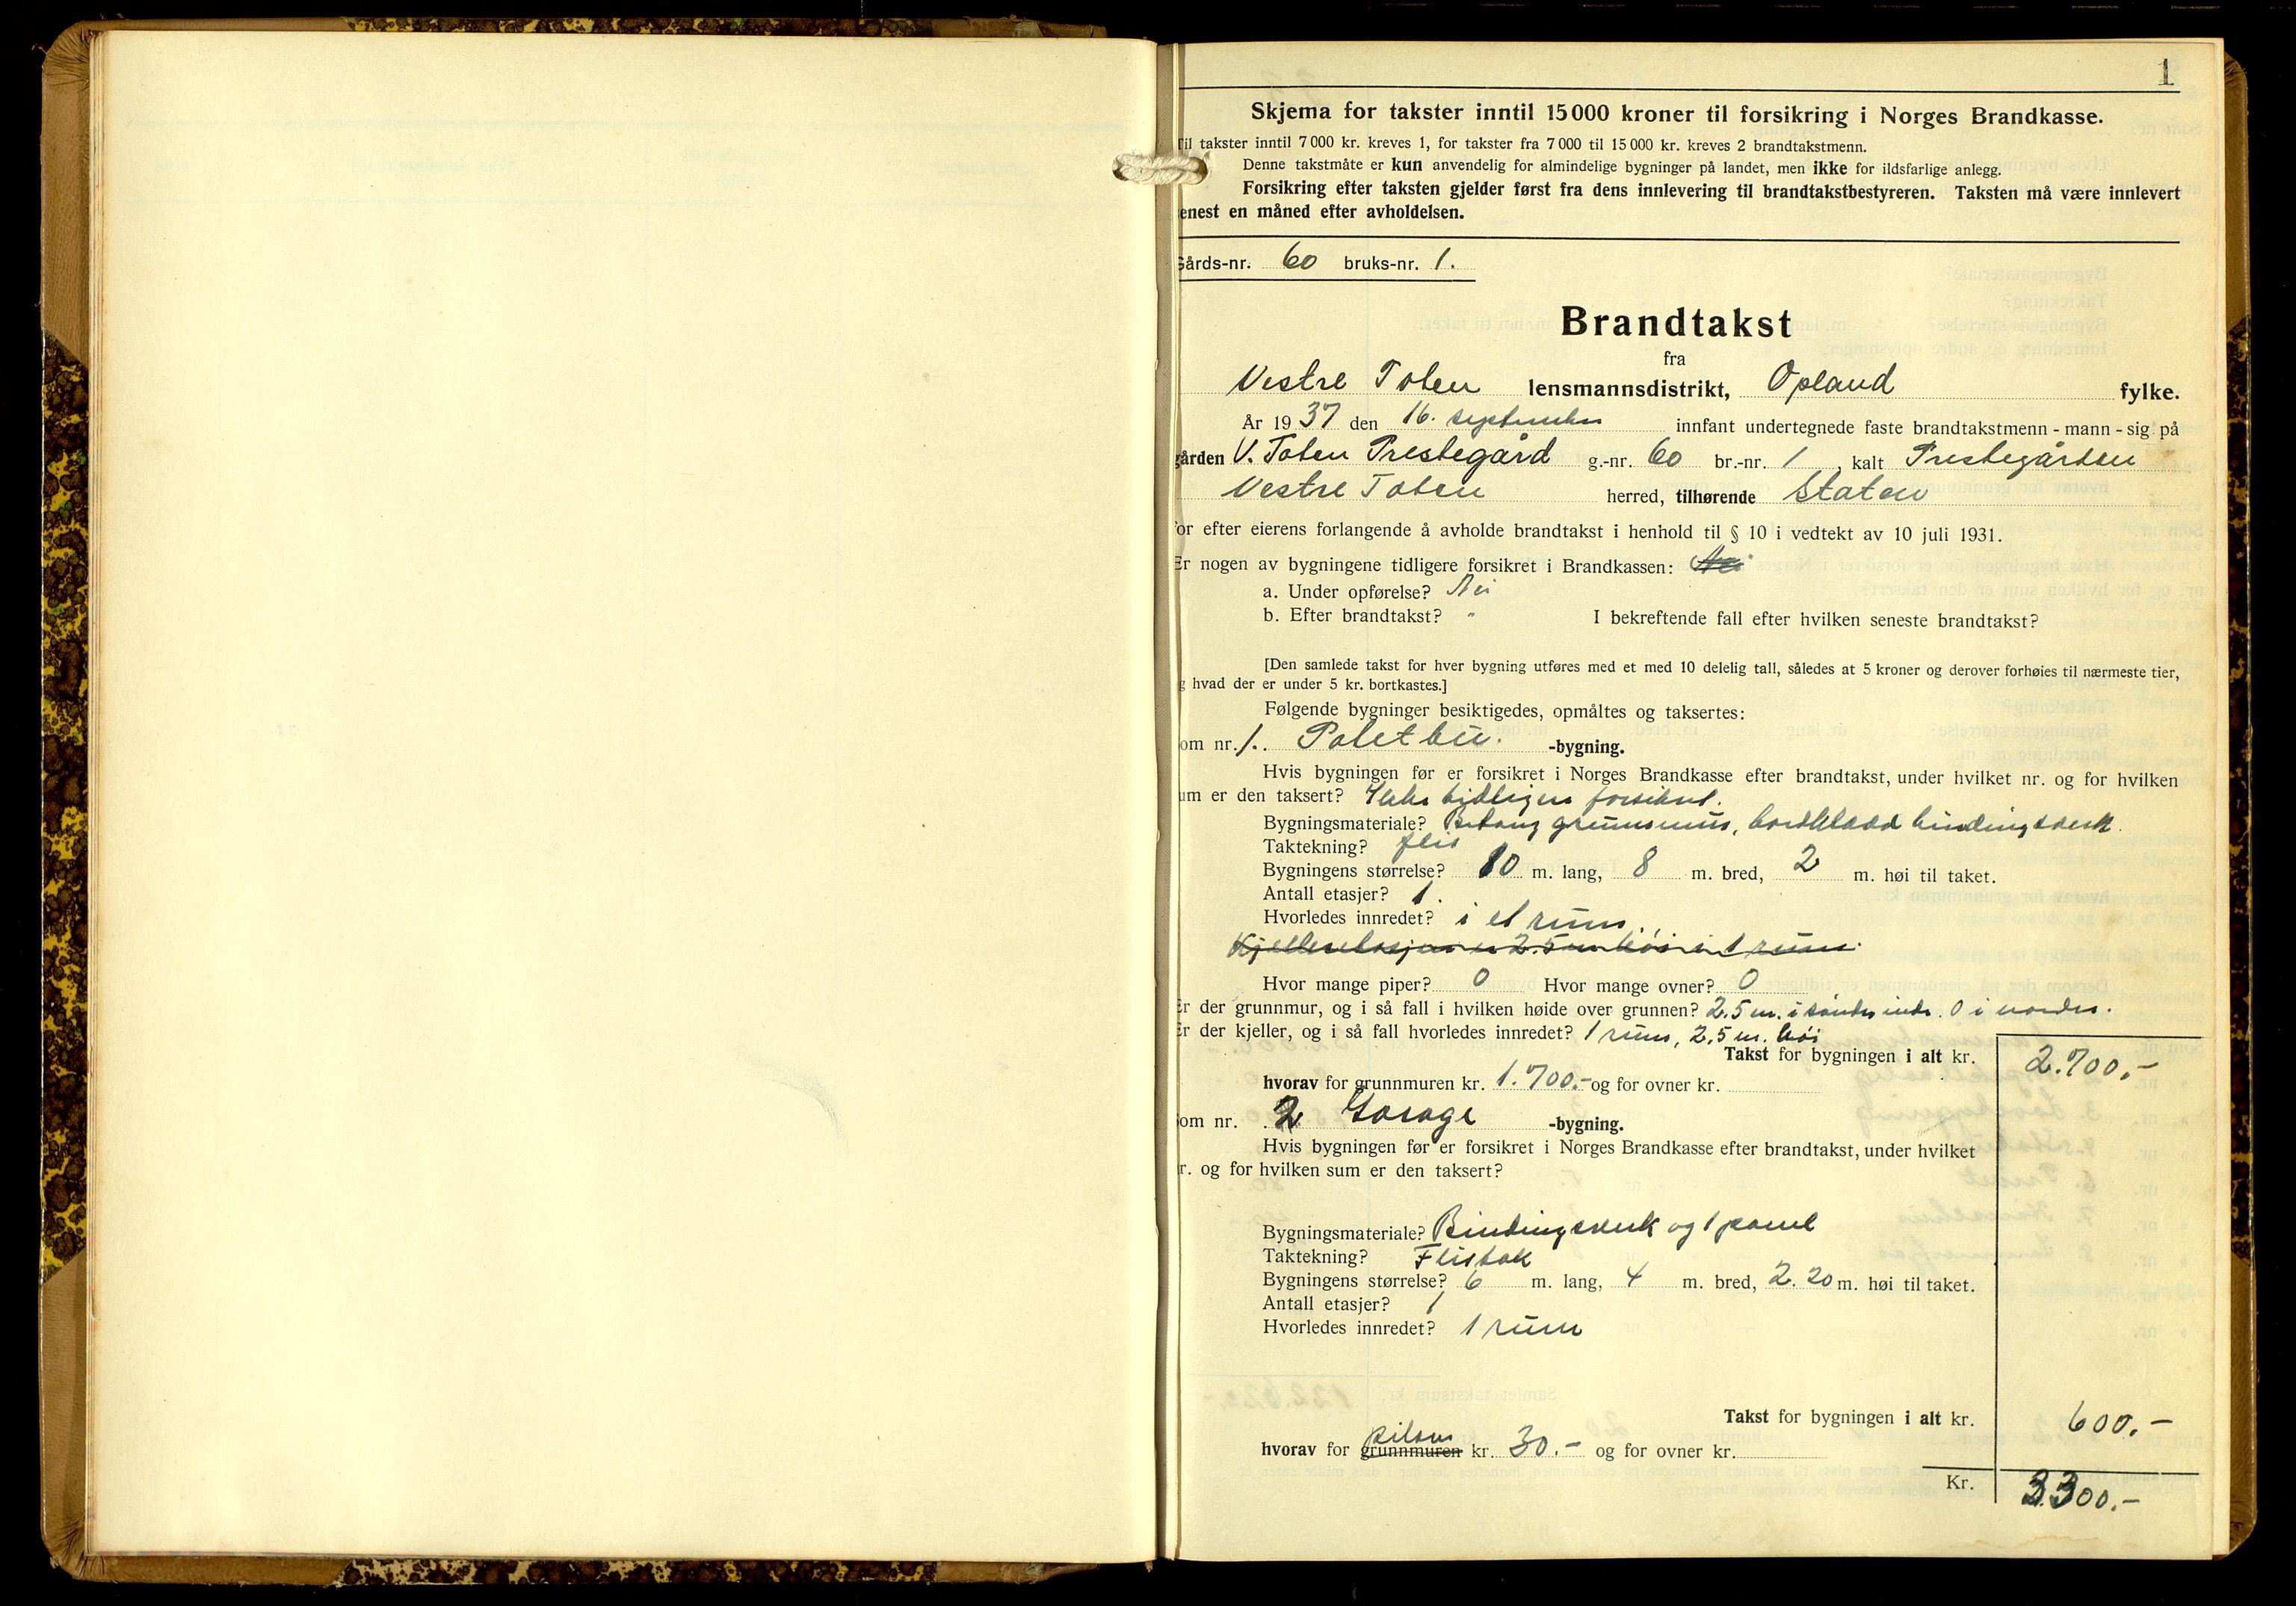 1
Skjema for takster inntil 15000 kroner til forsikring i Norges Brandkasse.
Til takster inntil 7000 kr. kreves 1, for takster fra 7000 til 15000 kr. kreves 2 brandtakstmenn.
Denne takstmåte er kun anvendelig for almindelige bygninger på landet, men ikke for ildsfarlige anlegg.
Forsikring efter taksten gjelder først fra dens innlevering til brandtakstbestyreren. Taksten må være innlevert
enest en måned efter avholdelsen.
Gårds-nr. 60 bruks-nr. 1.
Brandtakst
fra
Vestre Toten lensmannsdistrikt, Opland fylke.
År 1937 den 16. september innfant undertegnede faste brandtakstmenn - mann - sig på
gården V. Toten Prestegård g.-nr. 60 br.-nr. 1, kalt Prestegården
Vestre Toten herred, tilhørende Staten
for efter eierens forlangende å avholde brandtakst i henhold til § 10 i vedtekt av 10 juli 1931.
Er nogen av bygningene tidligere forsikret i Brandkassen: Nei
a. Under opførelse? Nei
b. Efter brandtakst? " I bekreftende fall efter hvilken seneste brandtakst?
[Den samlede takst for hver bygning utføres med et med 10 delelig tall, således at 5 kroner og derover forhøies til nærmeste tier,
g hvad der er under 5 kr. bortkastes.]
Følgende bygninger besiktigedes, opmåltes og taksertes:
om nr. 1. Potetbu. -bygning.
Hvis bygningen før er forsikret i Norges Brandkasse efter brandtakst, under hvilket nr. og for hvilken
um er den taksert? Ikke tidligere forsikret.
Bygningsmateriale? Betong grunnmur, bordklædd bindingsverk.
Taktekning? flis
Bygningens størrelse? 10 m. lang, 8 m. bred, 2 m. høi til taket.
Antall etasjer? 1.
Hvorledes innredet? i et rum.
Kjelleretasjen er 2.5 m høi i 1 rum.
Hvor mange piper? 0 Hvor mange ovner? 0
Er der grunnmur, og i så fall i hvilken høide over grunnen? 2.5 m. i søndre ende. 0 i nordre.
Er der kjeller, og i så fall hvorledes innredet? 1 rum, 2.5 m. høi
Takst for bygningen i alt kr. 2.700.-
hvorav for grunnmuren kr. 1.700.- og for ovner kr.
om nr. 2 Garage -bygning.
Hvis bygningen før er forsikret i Norges Brandkasse efter brandtakst, under hvilket
r. og for hvilken sum er den taksert?
Bygningsmateriale? Bindingsverk og 1 panel
Taktekning? Flistak
Bygningens størrelse? 6 m. lang, 4 m. bred, 2.20 m. høi til taket.
Antall etasjer? 1
Hvorledes innredet? 1 rum
Takst for bygningen i alt kr. 600.-
pilarer
hvorav for grunnmuren kr. 30.- og for ovner kr.
Kr. 3300.-